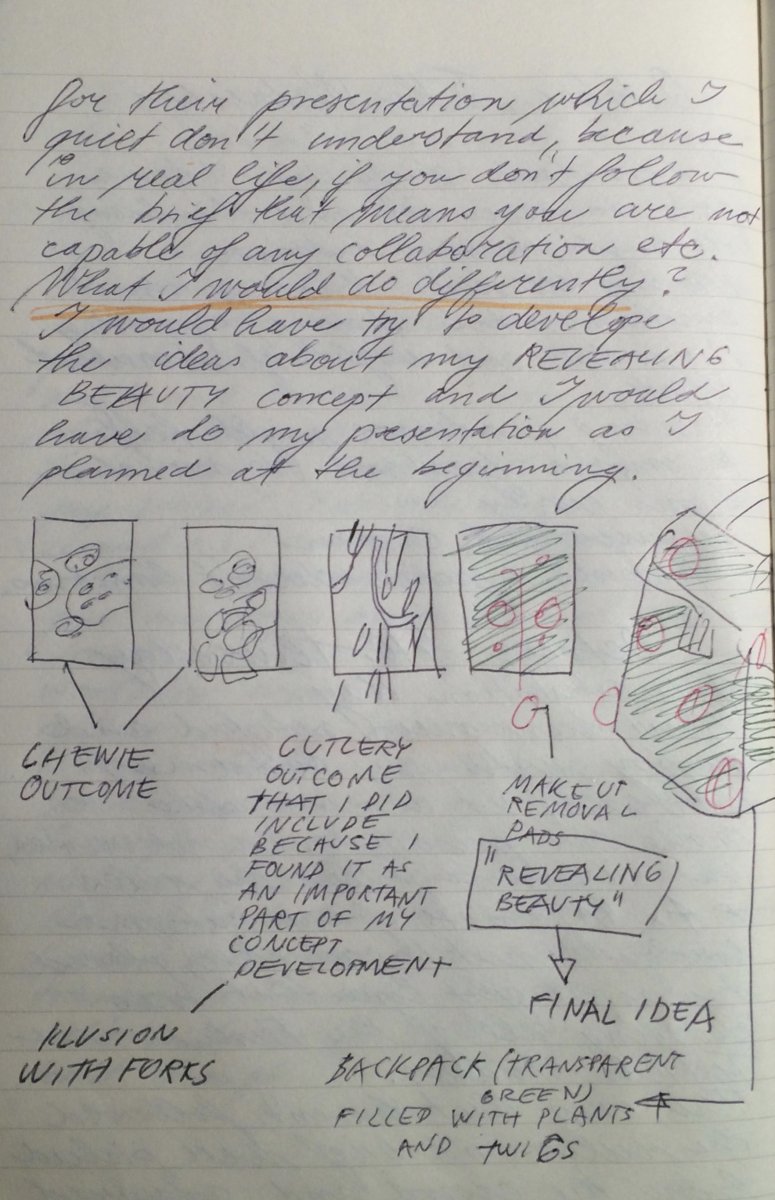 for their presentation which I
quiet don't understand, because
in real life, if you don't follow
the brief that means you are not
capable of any collaboration etc.
What I would do differently?
I would have try to develope
the ideas about my REVEALING
BEAUTY concept and I would
have do my presentation as I
planned at the beginning.
CHEWIE
OUTCOME
CUTLERY
OUTCOME
THAT I DID
INCLUDE
BECAUSE I
FOUND IT AS
AN IMPORTANT
PART OF MY
CONCEPT
DEVELOPMENT
ILUSION
WITH FORKS
MAKEUP
REMOVAL
PADS
"REVEALING
BEAUTY"
FINAL IDEA
BACKPACK (TRANSPARENT
GREEN)
FILLED WITH PLANTS
AND TWIGS